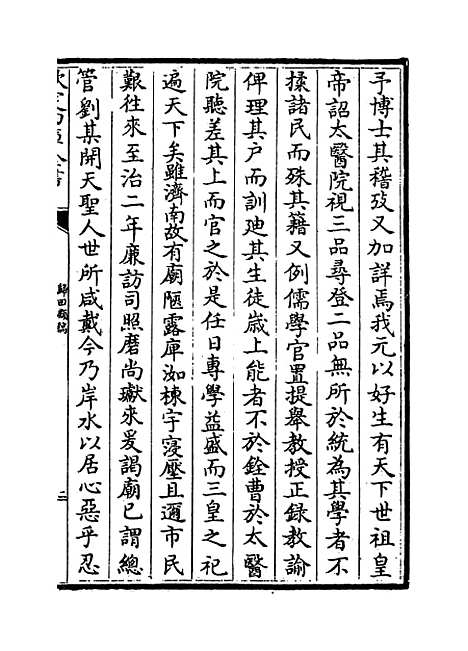 予博士其稽攷又加詳焉我元以好生有天下世祖皇
帝詔太醫院視三品尋登二品無所於統為其學者不
揉諸民而殊其籍又例儒學官置提舉教授正録教諭
俾理其户而訓廸其生徒嵗上能者不於銓曹於太醫
院聽差其上而官之於是任日專學益盛而三皇之祀
遍天下矣雖濟南故有廟陋露庫洳棟宇寖壓且邇市民
艱往來至治二年廉訪司照磨尚獻來爰謁廟已謂總
管劉某開天聖人世所咸戴今乃岸水以居心惡乎忍
歸田類稿
二